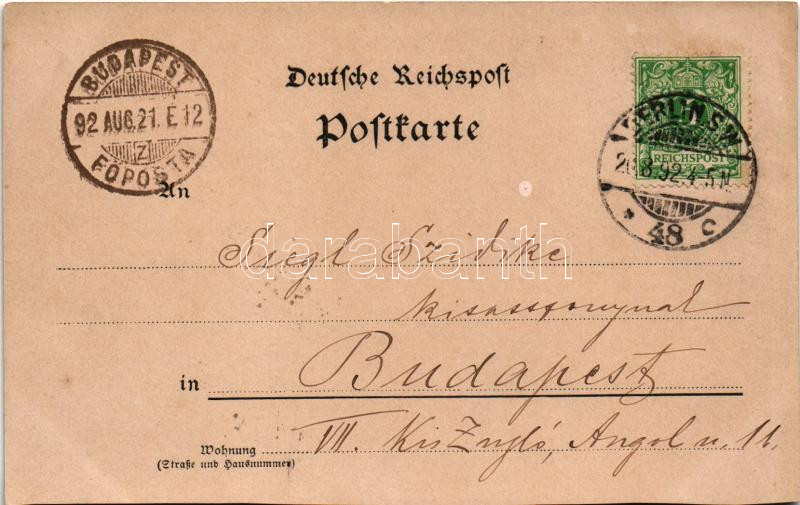 Deutsche Reichspost
Postkarte
BUDAPEST
92 AUG. 21. E 12
Z
FŐPOSTA
REICHSPOST
BERLIN S.W.
20.8.92.4-5N
* 48 c
An
Siegl Szidike
kisasszonynak
in Budapest
Wohnung VII. Kis Zugló, Angol u. 11.
(Straße und Hausnummer)
darabanth